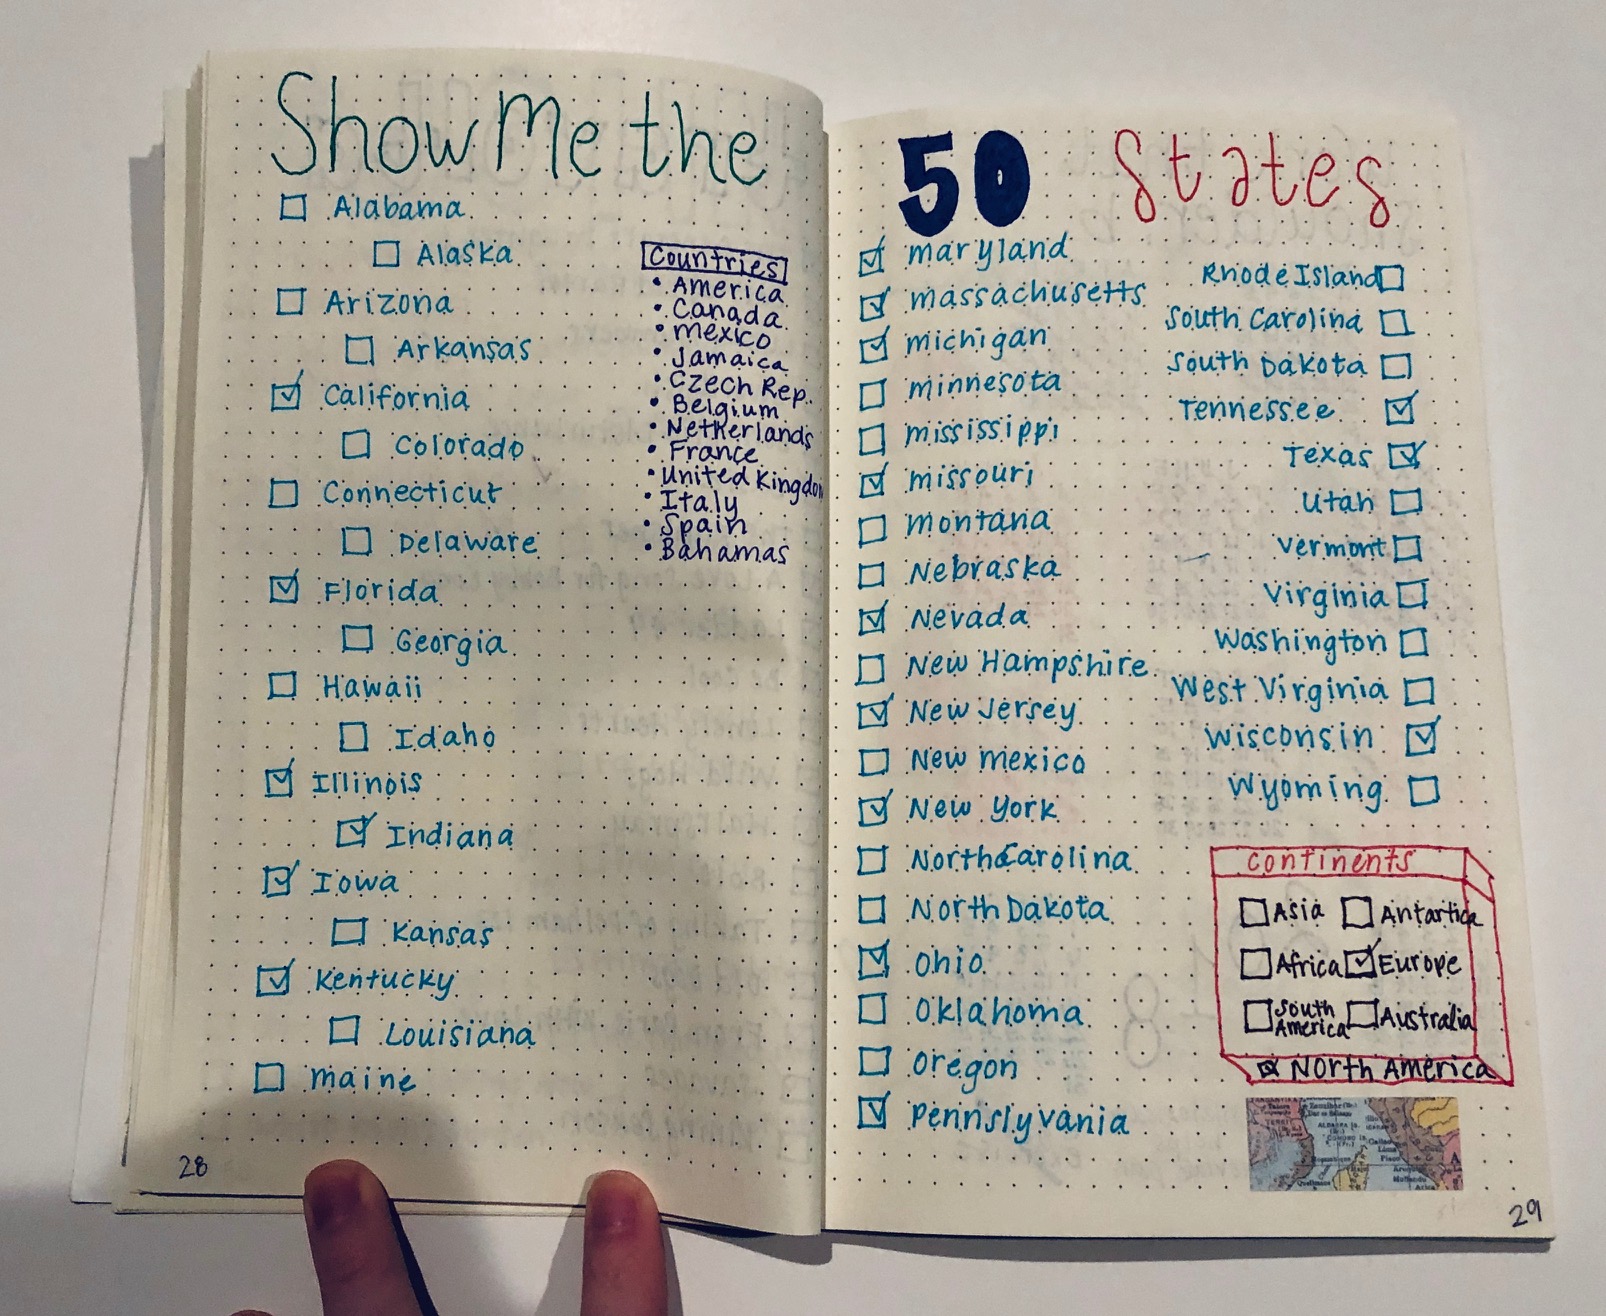 Show Me the
Alabama
Alaska
Arizona
Arkansas
California
Colorado
Connecticut
Delaware
Florida
Georgia
Hawaii
Idaho
Illinois
Indiana
Iowa
Kansas
Kentucky
Louisiana
maine
Countries
• America
• Canada
• mexico
• Jamaica
• Czech Rep.
• Belgium
• Netherlands
• France
• United Kingdom
• Italy
• Spain
• Bahamas
28
50 States
maryland
massachusetts
michigan
minnesota
mississippi
missouri
montana
Nebraska
Nevada
New Hampshire
New Jersey
New mexico
New York
North Carolina
North Dakota
Ohio
Oklahoma
Oregon
Pennslyvania
Rhode Island
South Carolina
South Dakota
Tennessee
Texas
Utah
Vermont
Virginia
Washington
West Virginia
Wisconsin
Wyoming
Continents
Asia Antartica
Africa Europe
South America Australia
North America
29